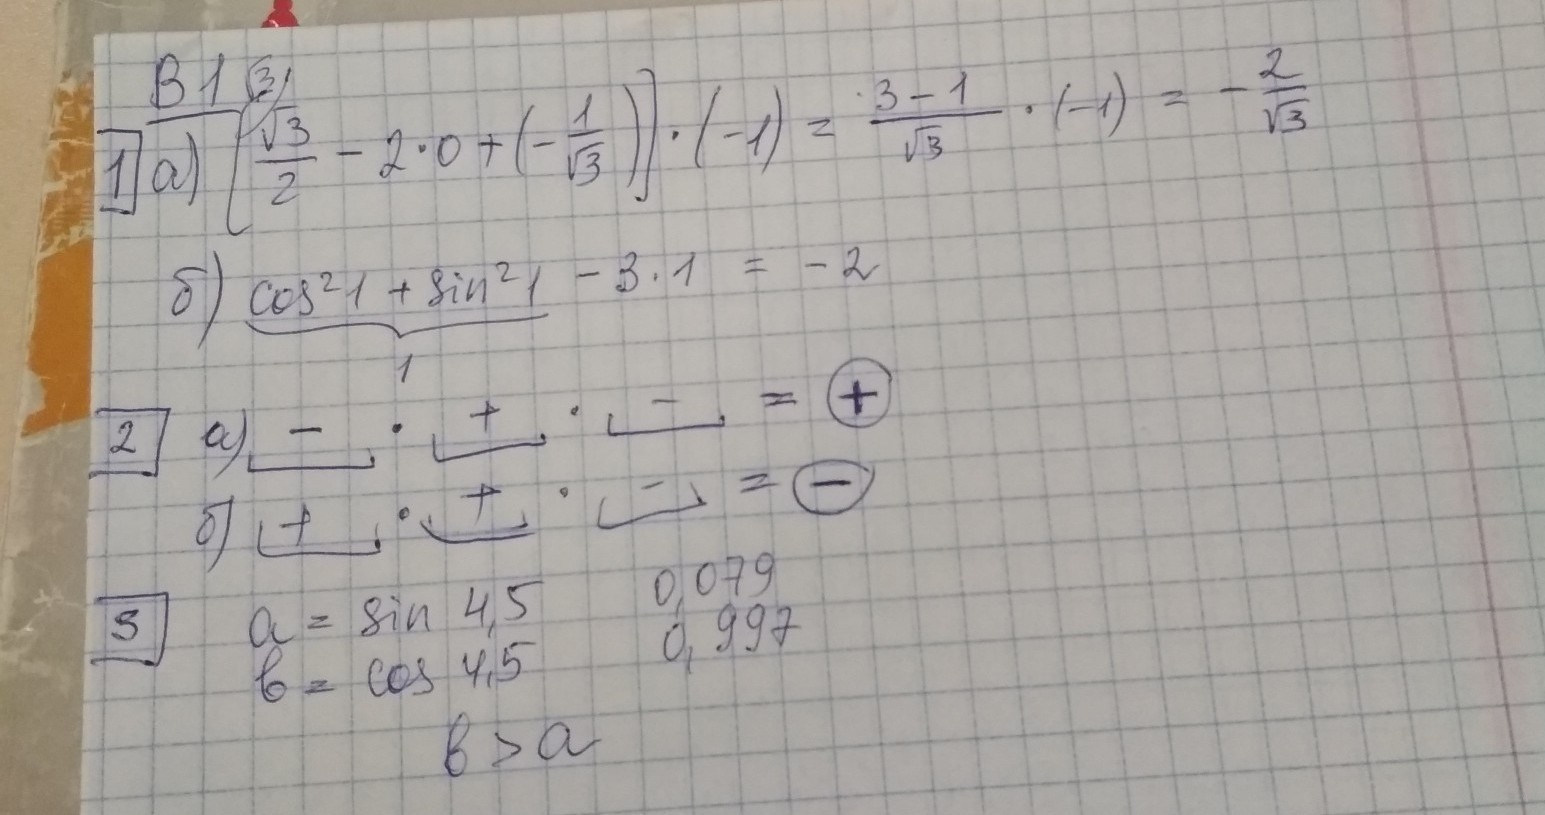 В1
1 а) [√3/2 - 2·0 + (-1/√3)]·(-1) = (3-1)/√3 · (-1) = -2/√3
б) cos²1 + sin²1 - 3·1 = -2
1
2 а) - · + · - = +
б) + · + · - = -
3 a = sin 4,5 0,079
b = cos 4,5 0,997
b > a